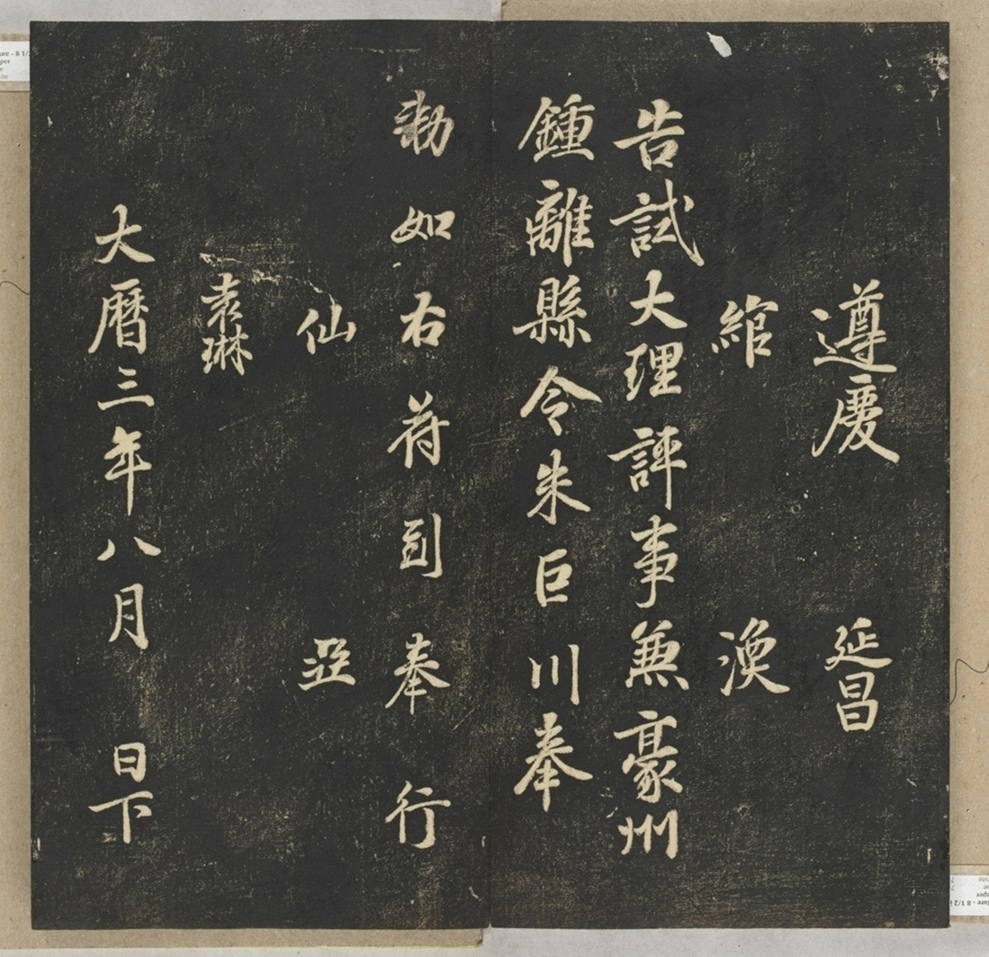 遵慶 延昌
綰 渙
告試大理評事兼豪州
鍾離縣令朱巨川奉
勑如右符到奉行
仙 亞
袁琳
大曆三年八月 日下